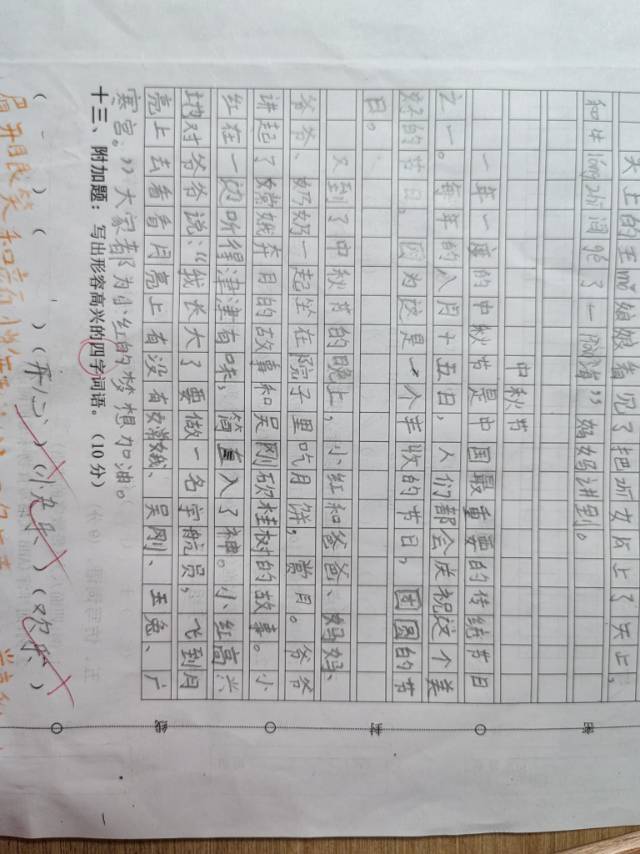 天上的王母娘娘看见了把
上了天上，
妈妈讲到。
中秋节
一年一度的中秋节是中国最重要的传统节日
之一。每年的八月十五日，人们都会庆祝这个美
好的节日，因为这是一个丰收的节日，团圆的节
日。
又到了中秋节的晚上，小红和爸爸、妈妈、
爷爷、奶奶一起坐在院子里吃月饼，赏月。爷爷
讲起了嫦娥奔月的故事和吴刚砍桂树的故事。小
红在一边听得津津有味，简直入了神。小红高兴
地对爷爷说：“我长大了要做一名宇航员，飞到月
亮上去看看月亮上有没有嫦娥、吴刚、玉兔、广
寒宫。”大家都为小红的梦想加油。
十三、附加题：写出形容高兴的四字词语。（10分）
（ ）（ ）（开心）（小九乐）（欢乐）
眉开眼笑
密 ○ 封 ○ 线 ○